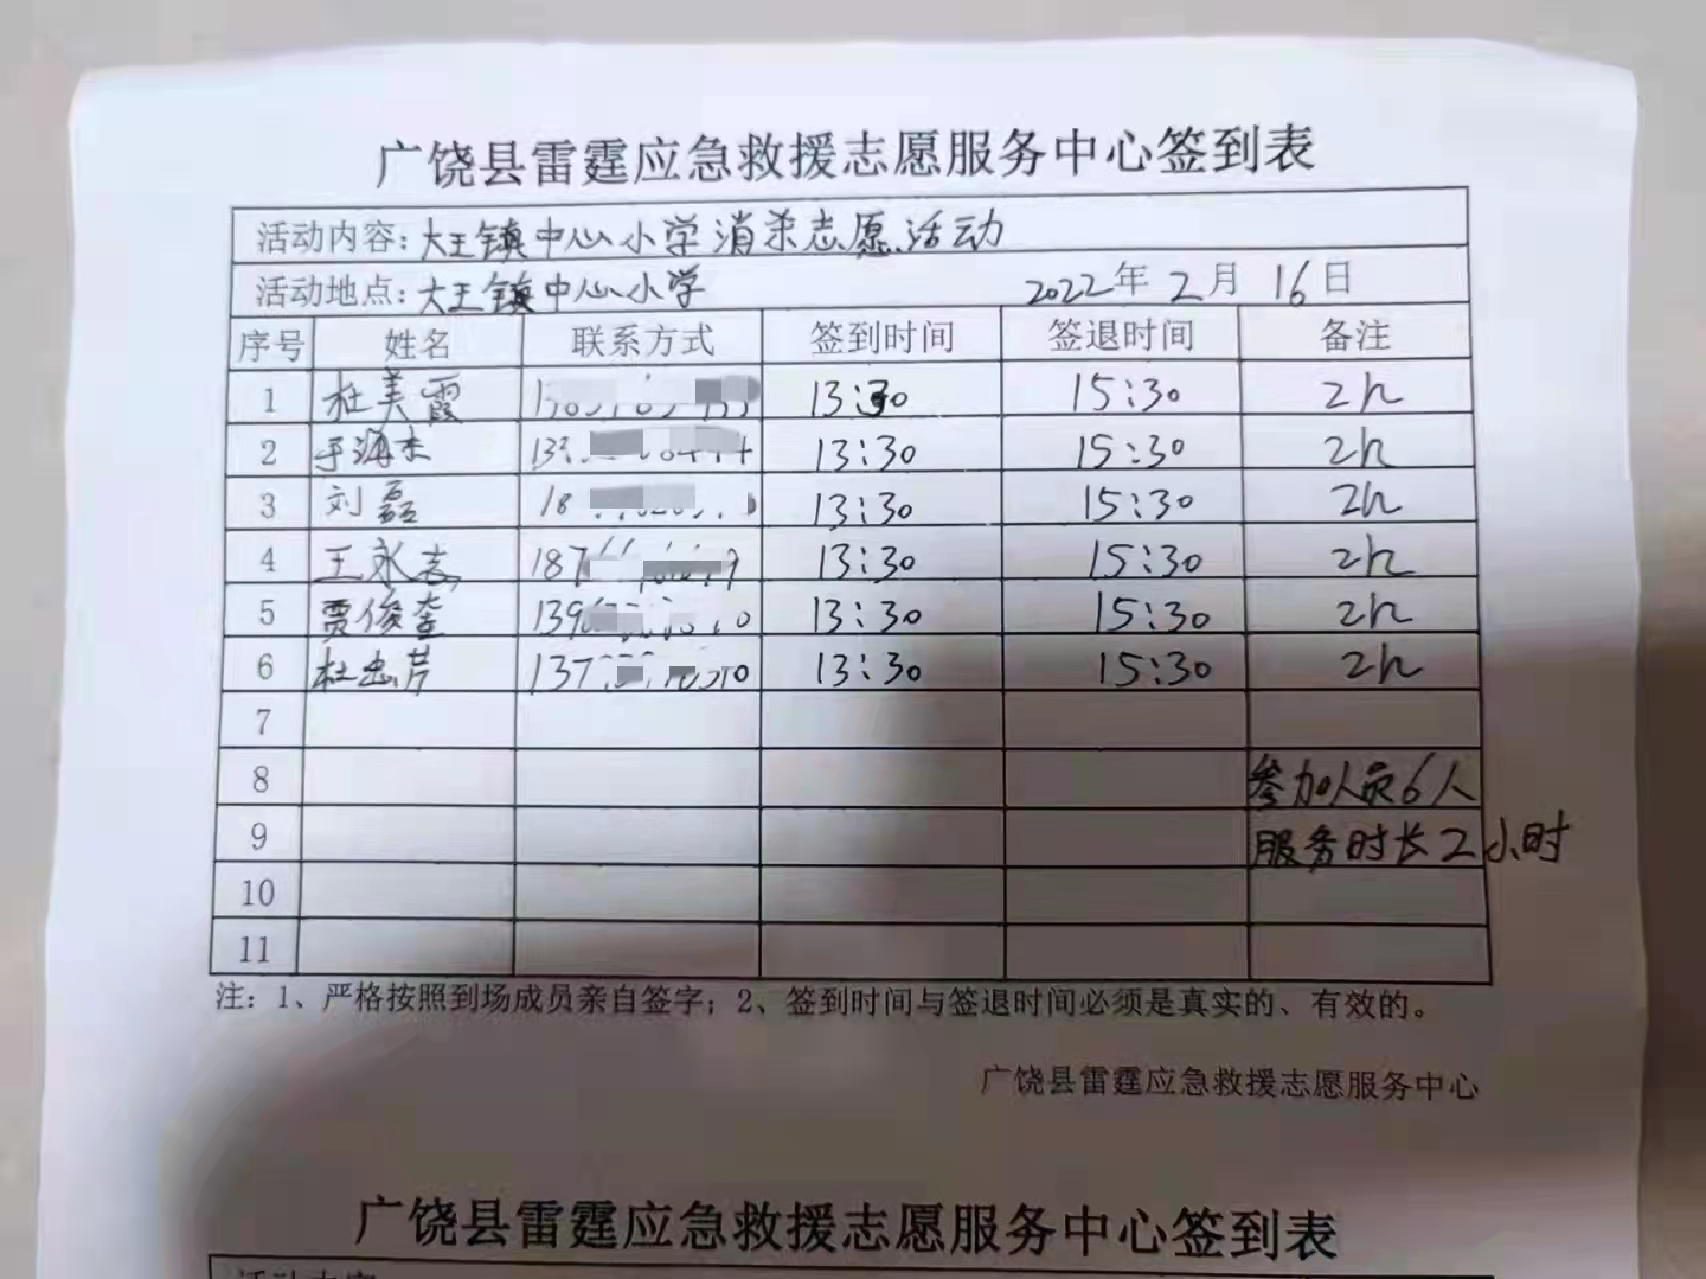 广饶县雷霆应急救援志愿服务中心签到表
活动内容:大王镇中心小学消杀志愿活动
活动地点:大王镇中心小学 2022年2月16日
序号 姓名 联系方式 签到时间 签退时间 备注
1 杜美霞 13:30 15:30 2h
2 于海杰 13:30 15:30 2h
3 刘磊 18 13:30 15:30 2h
4 王永志 187 13:30 15:30 2h
5 贾俊奎 139 13:30 15:30 2h
6 杜忠芹 137 13:30 15:30 2h
7
8 参加人员6人
9 服务时长2小时
10
11
注:1、严格按照到场成员亲自签字;2、签到时间与签退时间必须是真实的、有效的。
广饶县雷霆应急救援志愿服务中心
广饶县雷霆应急救援志愿服务中心签到表